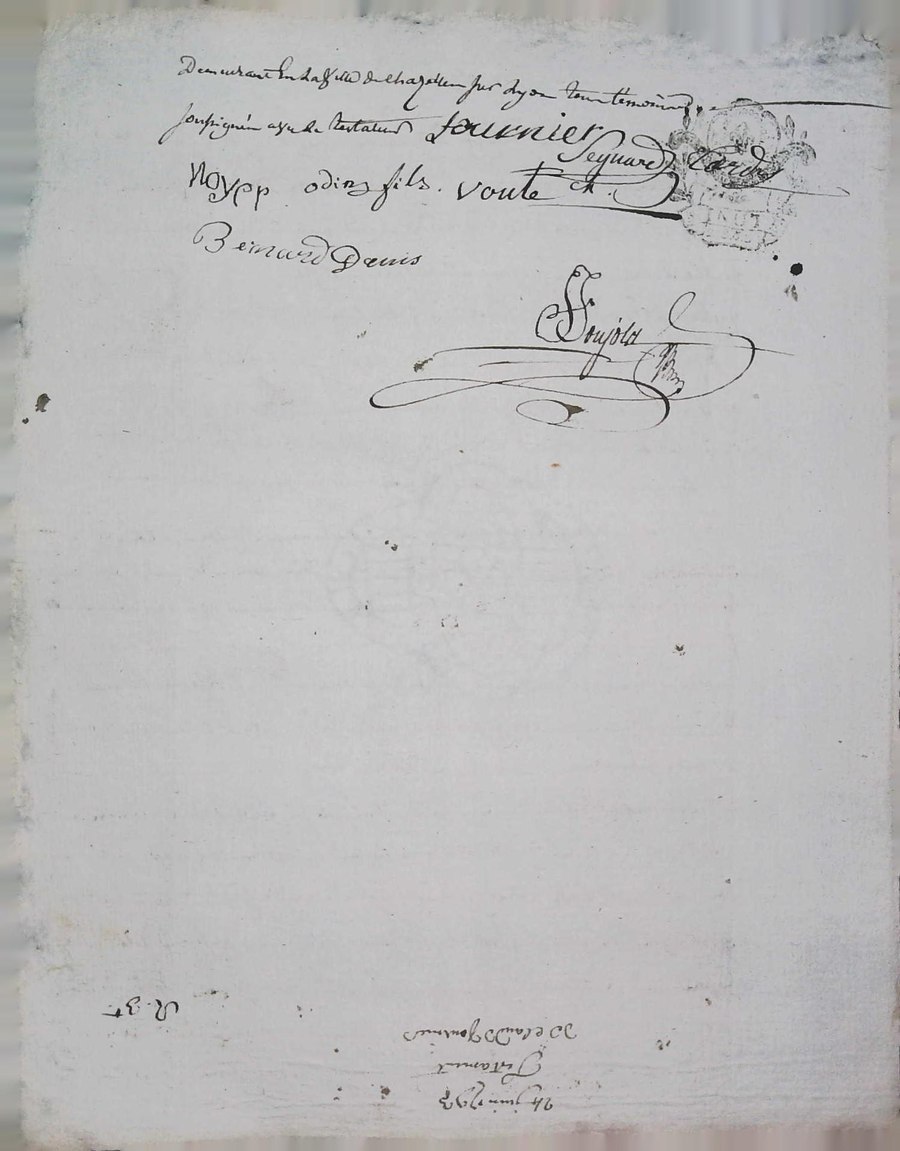 Demeurant En La Ville de Chazelles sur Lyon tous temoins
soussignés avec le testateur fournier
Seyuard
Noyer odin fils. voute ch.
Bernard Denis
Poujola
24 juin 1793
Testament
de claude fournier
R. 3#